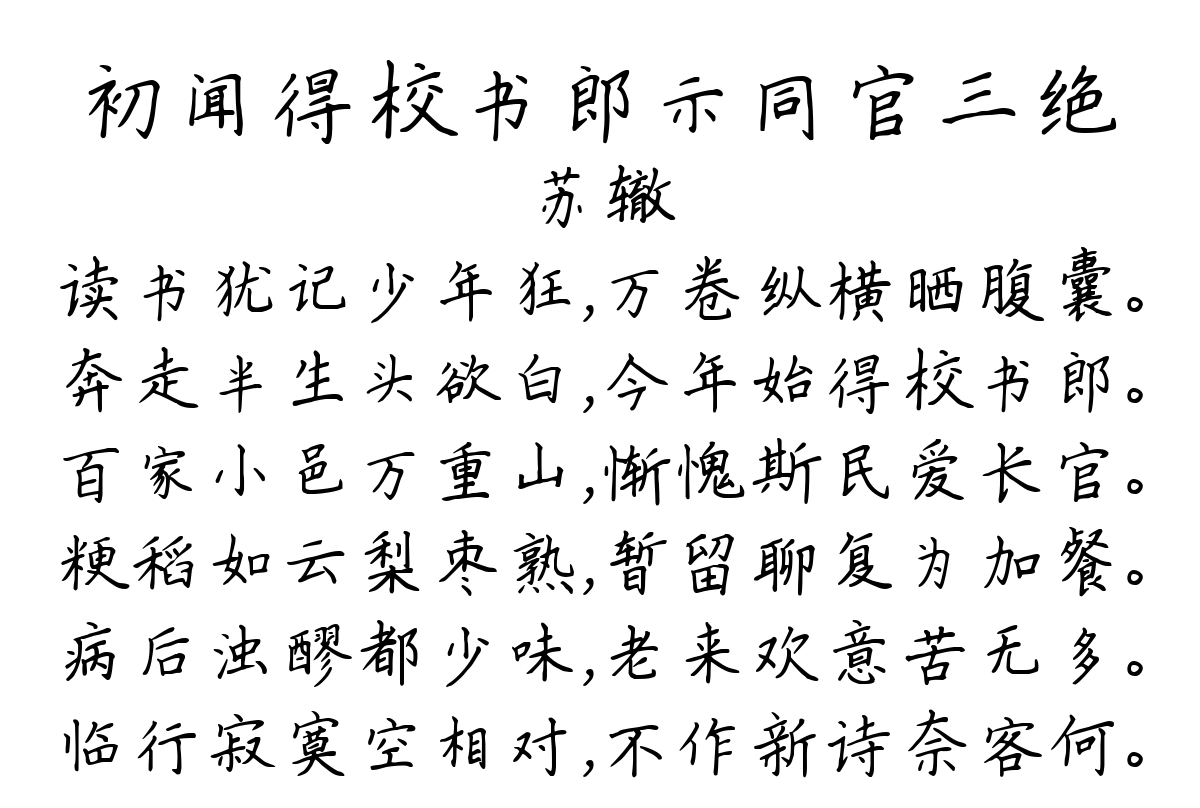 初闻得校书郎示同官三绝
苏辙
读书犹记少年狂,万卷纵横晒腹囊。
奔走半生头欲白,今年始得校书郎。
百家小邑万重山,惭愧斯民爱长官。
粳稻如云梨枣熟,暂留聊复为加餐。
病后浊醪都少味,老来欢意苦无多。
临行寂寞空相对,不作新诗奈客何。